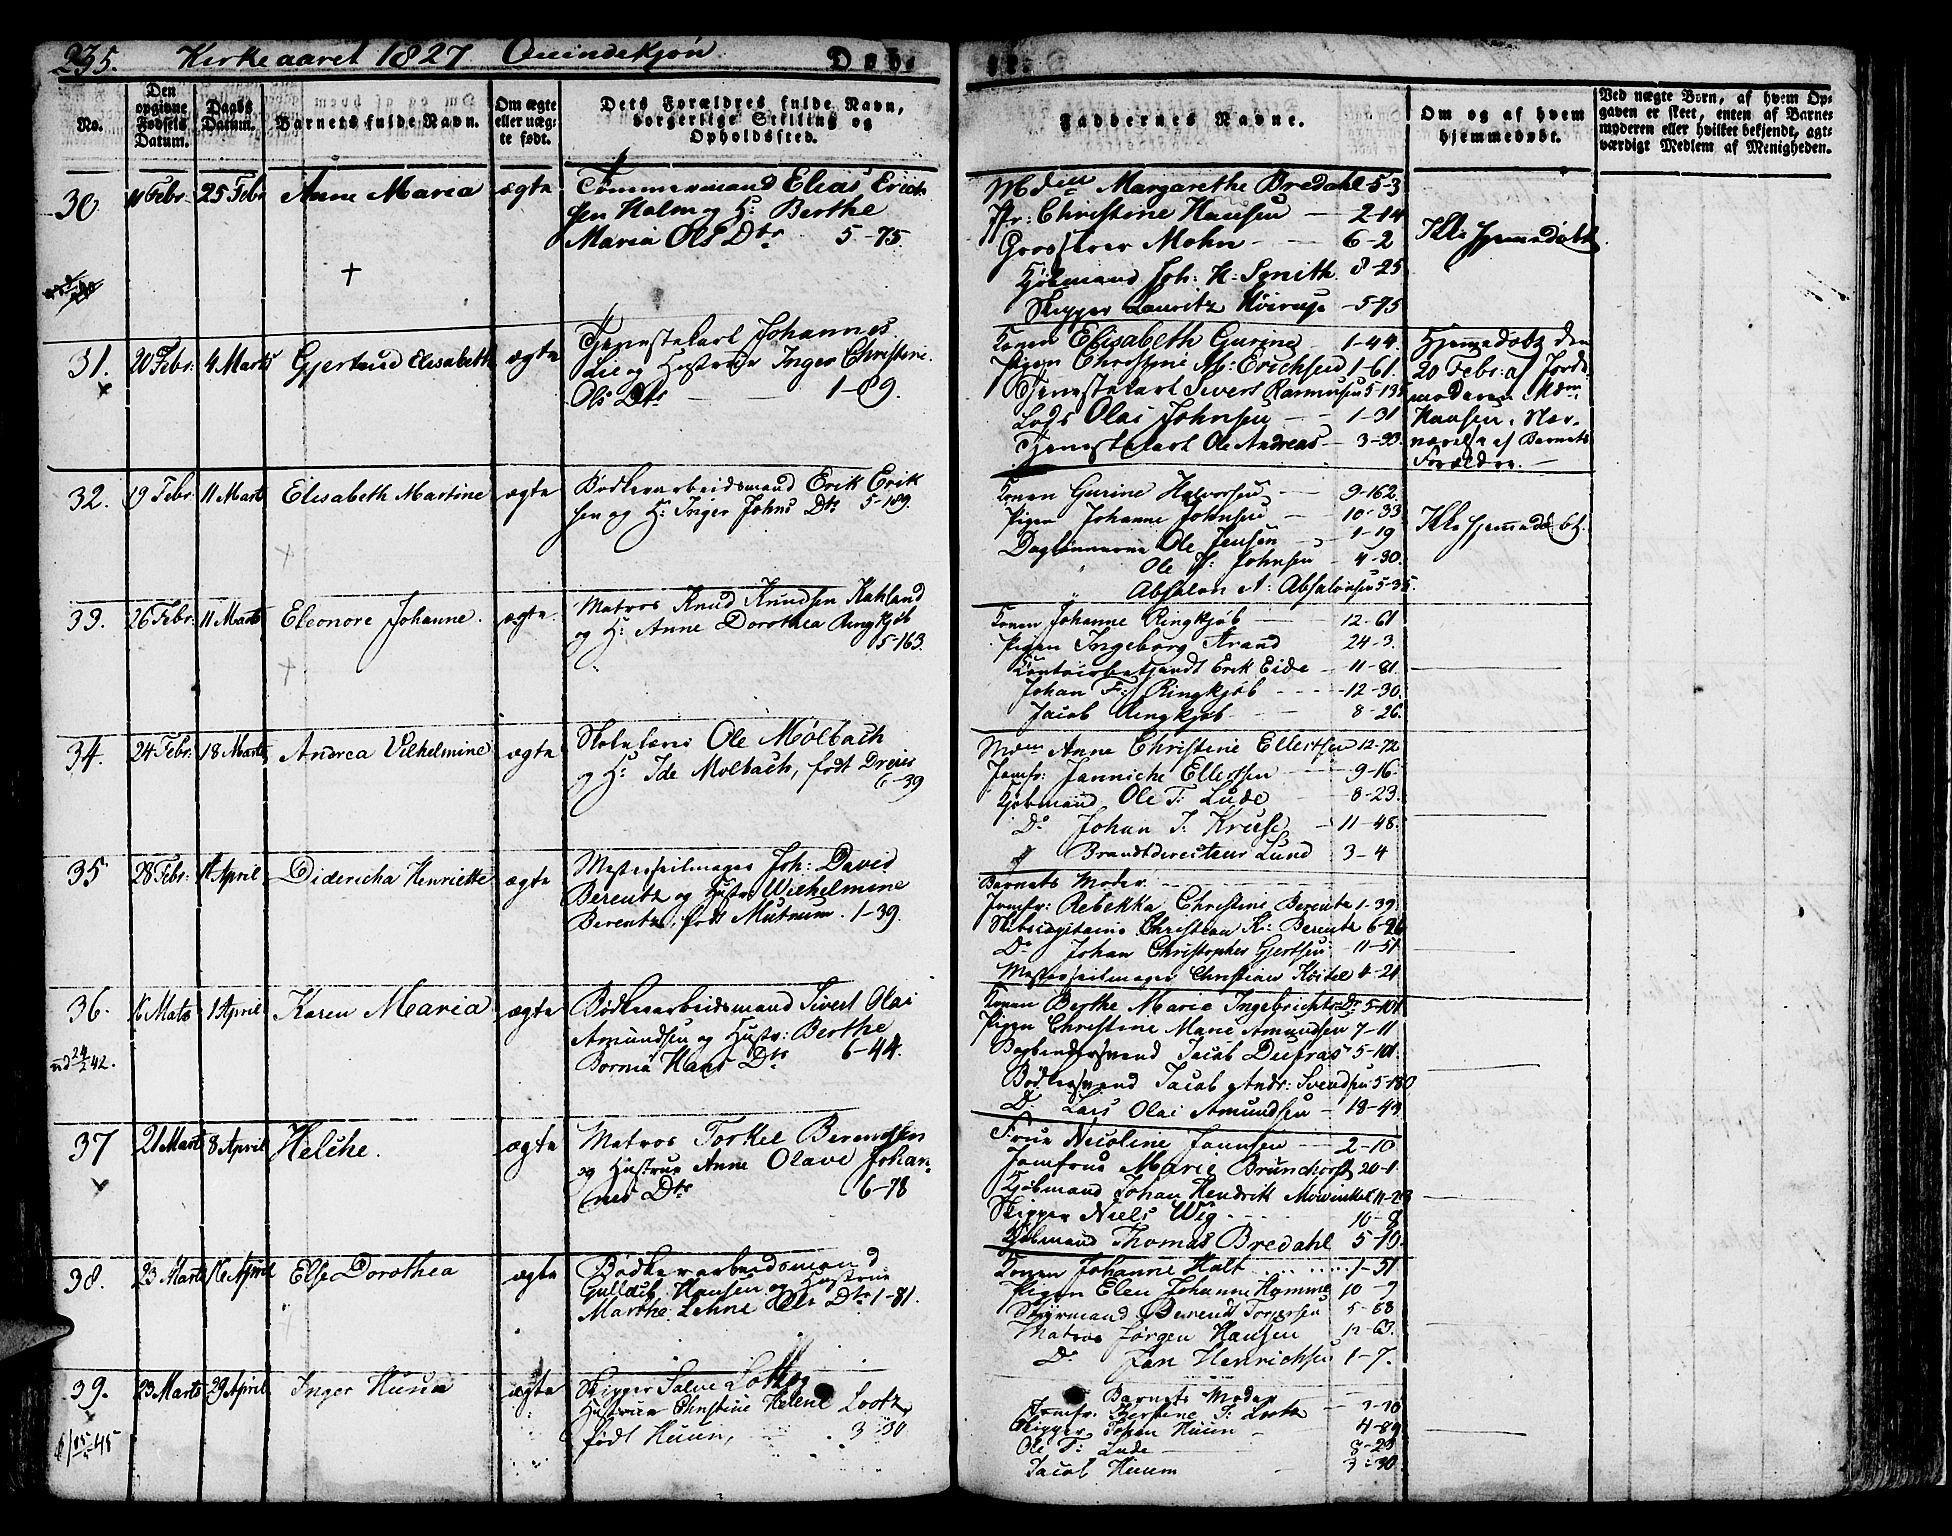 235. Kirkeaaret 1827 Quindekjøn Døb-
No.
Den opgivne Fødsels Datum.
Daabs Datum.
Barnets fulde Navn.
Om ægte eller uægte født.
Dets Forældres fulde Navn, borgerlige Stilling og Opholdssted.
Faddernes Navne.
Om og af hvem hjemmedøbt.
Ved uægte Børn, af hvem Opgaven er skeet, enten af Barnemoderen eller hvilket bekjendt, agtværdigt Medlem af Menigheden.
30. 11 Febr: 25 Febr Anne Maria ægte
Tømmermand Elias Erich
sen Holm og H: Berthe
Maria Ols Dtr 5-75.
Mdm Margarethe Bredahl 5-3
Jfr: Christine Hansen 2-14
Grosserer Mohn 6-2
Kjøbmand Joh: H: Smith 8-25
Skipper Lauritz 5-75
Ikke hjemmedøbt
31. 20 Febr: 4 Marts Gjertrud Elisabeth ægte
Tjenestekarl Johannes
Lie og Hustrue Inger Christine
Ols Dtr 1-89.
Konen Elisabeth Gurine 1-44.
Pigen Christine M: Erichsen 1-61.
Tjenestekarl Sivert Rasmusen 5-135
Lods Olai Johnsen 1-31
Tjenestekarl Ole Andreas 3-33.
Hjemmedøbt den
20 Febr: af Jorde
moderen Mdm
Hansen i Nær
værelse af Barnets
Forældre.
32. 19 Febr 11 Marts Elisabeth Martine ægte
Bødkerarbeidsmand Erik Erik
sen og H: Inger Johns Dtr 5-189.
Konen Gurine Halvorsen 9-162.
Pigen Johanne Johnsen 10-33
Daglønnerne Ole Jensen 1-19
Ole J: Johnsen 4-30.
" Absalon A: Absalonsen 5-35.
Ikke hjemmedøbt.
33. 26 Febr: 11 Marts Eleonore Johanne. ægte.
Matros Knud Knudsen Kahland
og H: Anne Dorothea Ringkjøb
5-163.
Konen Johanne Ringkjøb 12-61
Pigen Ingeborg Strand 24-3.
Erik Eide 11-81.
Johan F: Ringkjøb 12-30.
Jacob Ringkjøb 8-26.
34. 24 Febr. 18 Marts Andrea Vilhelmine ægte
Skolelærer Ole Mølbach
og H: Ide Molbach, født Dreier
6-39
Mdm Anne Christine Ellertsen 12-72
Jomfr: Jannicke Ellertsen 9-16.
Kjøbmand Ole T: Lude 8-23.
Do Johan J. Kruse 11-48.
Branddirecteur Lund 3-4
35 28 Febr: 1 April Didericha Henriette ægte
Mesterseilmager Joh: David
Berentz og Hustr: Wilhelmine
Berentz, født Mutnum. 1-39.
Barnets Moder
Jomfr: Rebekka Christine Berentz 1-39.
Skibscapitaine Christian K: Berentz 6-26
Do Johan Christopher Gjertsen 11-51
Mesterseilmager Christian 4-21
36. 16 Mats 1 April Karen Maria ægte
Bødkerarbeidsmand Sivert Olai
Amundsen og Hustr: Berthe
Bornia Hans Dtr 6-44.
Konen Berthe Marie Ingebrichts Dr 5-101
Pigen Christine Marie Amundsen 7-11
Bogbindersvend Jacob Dufras 5-101.
Bødkersvend Jacob Andr: Svendsen 5-180
D. Lars Olai Amundsen 18-43.
37 21 Marts 8 April Helche. ægte
Matros Torkel Berentsen
og Hustrue Anne Olave Johan
nes Dtr 6-78
Frue Nicoline Jannsen 2-10
Jomfrue Marie Brunchorst 20-1
Kjøbmand Johan Hendrik Mowinkel 11-
Skipper Niels Wiig 10-8
Kjøbmand Thomas Bredahl 5-10.
38. 23 Marts 16 April Else Dorothea ægte
Bødkerarbeidsmand
Gullach Hansen og Hustrue
Marthe Lehne Ols Dtr 1-81.
Konen Johanne Halt 1-51
Pigen Elen Johanne Homme 10-7
Styrmand Berendt Torgersen 5-68
Matros Jørgen Hansen 12-63.
Do Jan Henrichsen 1-7.
39. 23 Marts 29 April Inger Huun ægte
Skipper Salve Lotz og
Hustrue Christine Helene Lootz
født Huun, 3-30
Barnets Moder
Jomfr: Kerstine T: Lootz
Skipper Johan Huun 4-89
Ole T: Lude 8-23
Jacob Huun 3-30